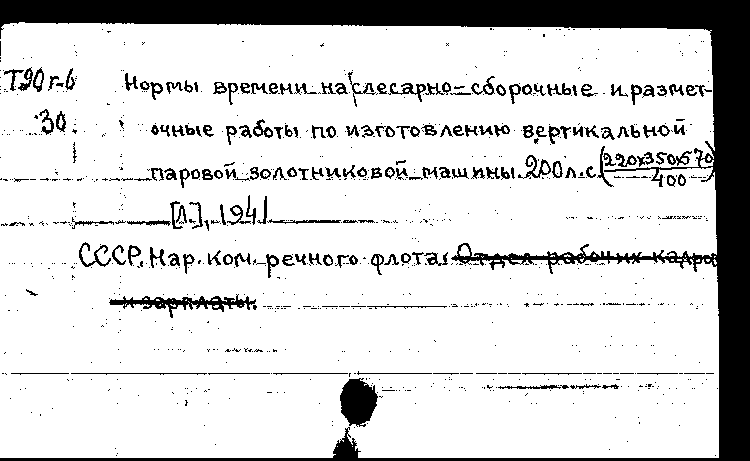 Т90г-6 Нормы времени на слесарно-сборочные и размет-
30 очные работы по изготовлению вертикальной
паровой золотниковой машины 200 л.с. (220х350х570/400)
[Л.], 1941
СССР. Нар. ком. речного флота. Отдел рабочих кадро
и зарплаты.